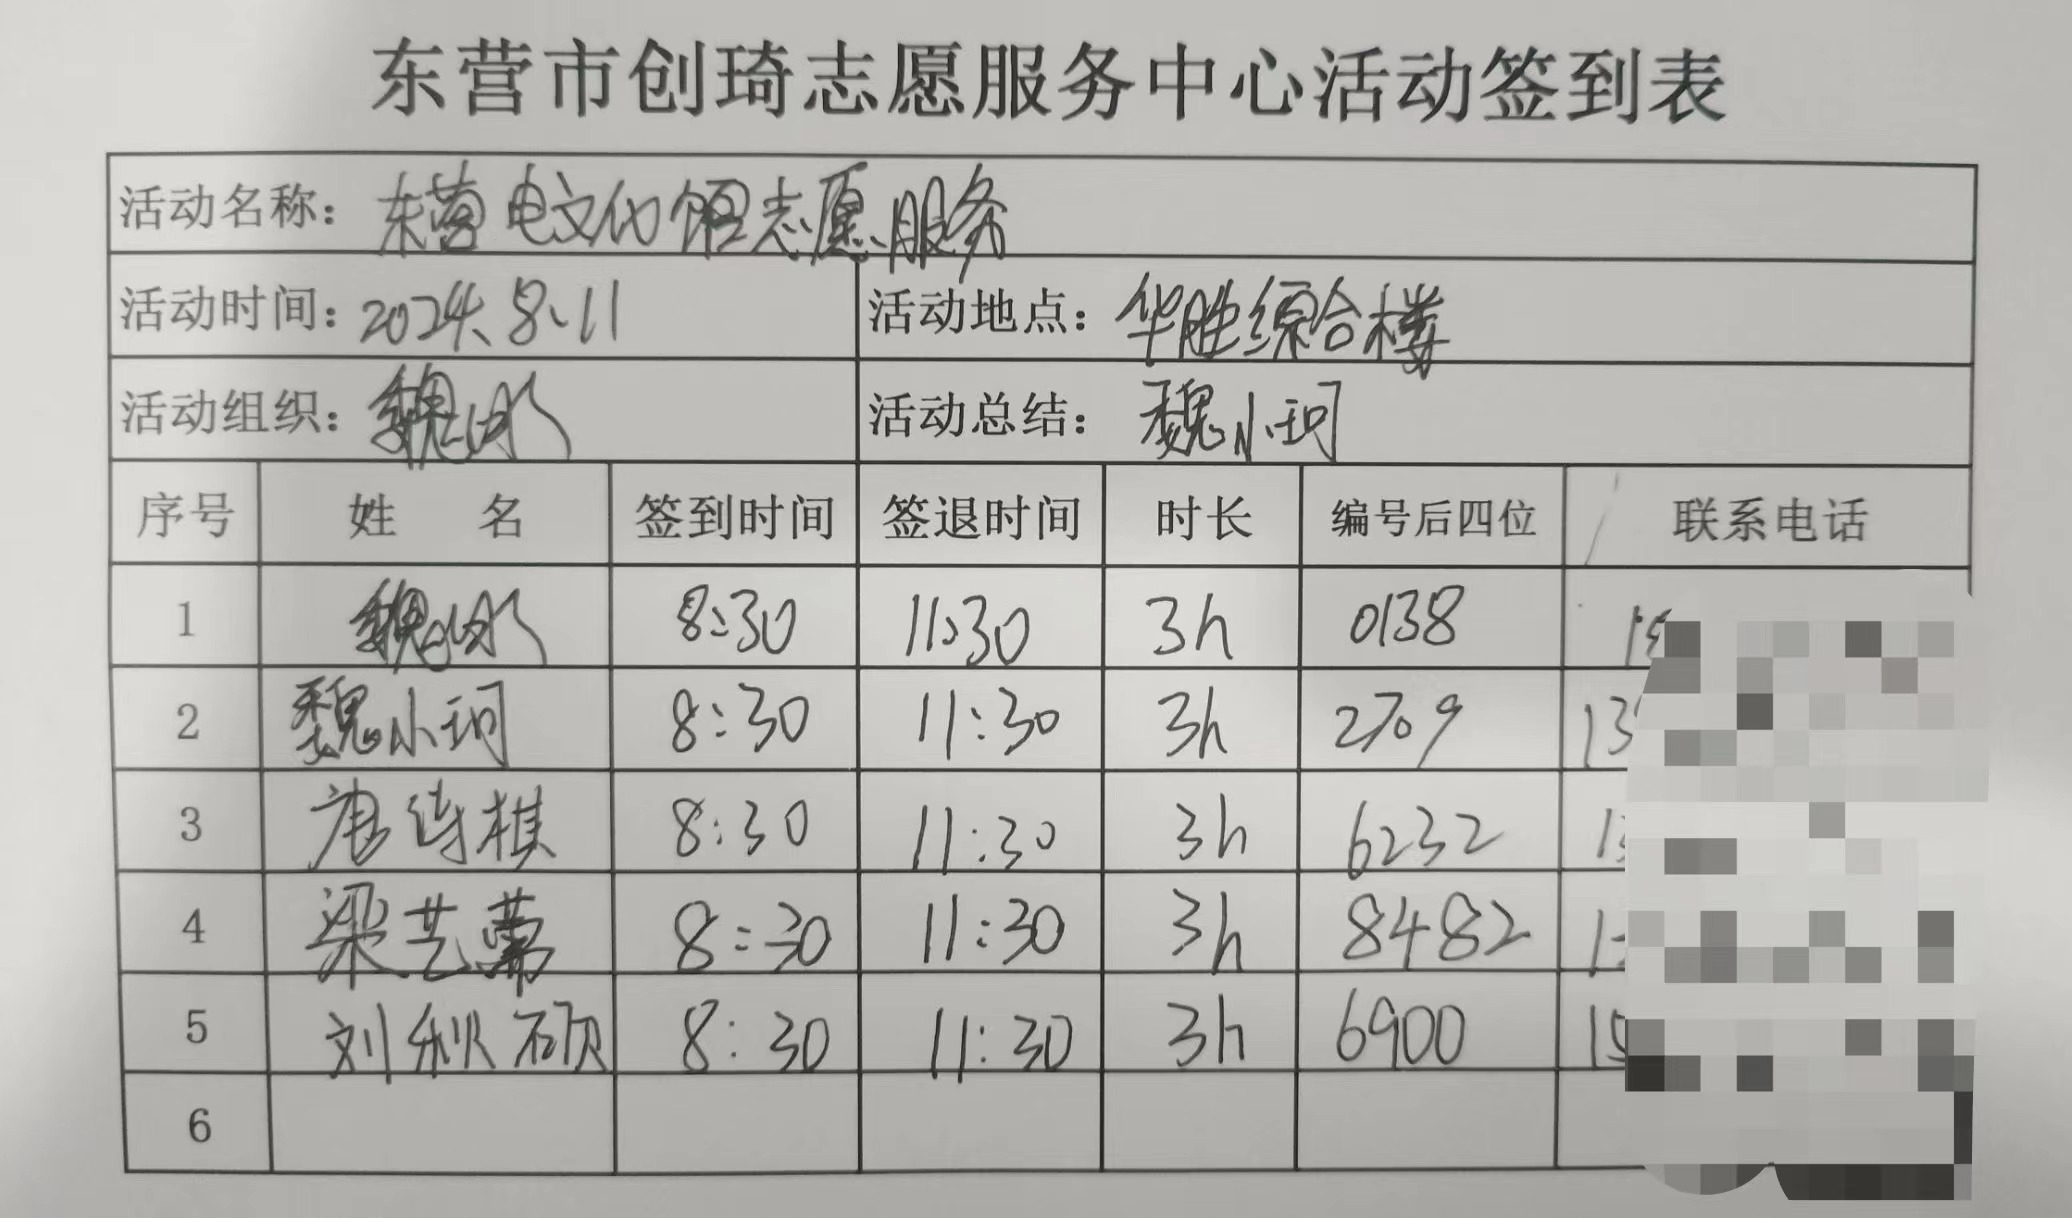 东营市创琦志愿服务中心活动签到表
活动名称：东营电文化馆志愿服务
活动时间：2024、8、11 活动地点：华胜综合楼
活动组织：魏 活动总结：魏小珂
序号 姓 名 签到时间 签退时间 时长 编号后四位 联系电话
1 魏 8:30 11:30 3h 0138
2 魏小珂 8:30 11:30 3h 2709 13
3 唐诗棋 8:30 11:30 3h 6232 13
4 梁艺 8:30 11:30 3h 8482 1
5 刘秋硕 8:30 11:30 3h 6900 15
6